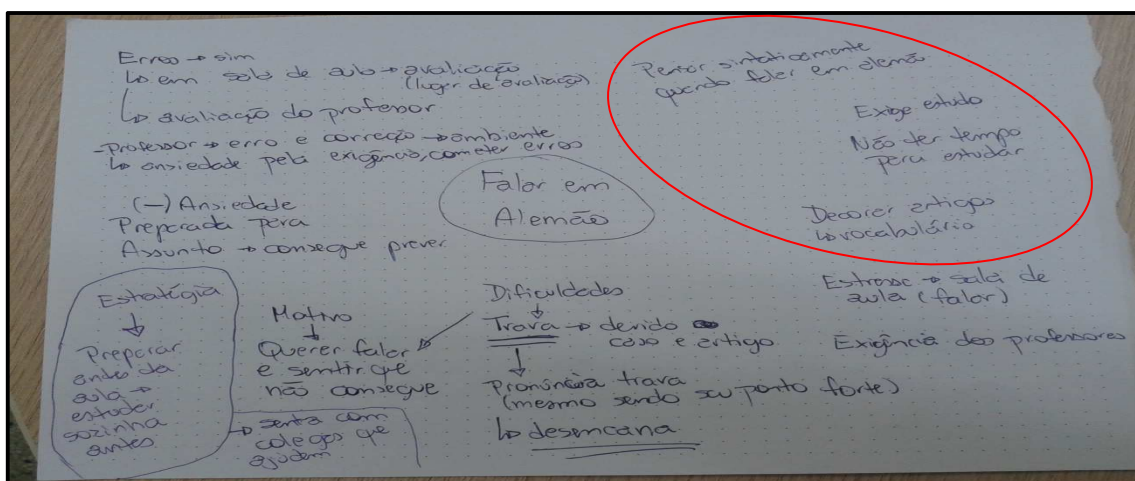 Erros → sim
↳ em sala de aula → avaliação
(lugar de avaliação)
↳ avaliação do professor
- Professor → erro e correção → ambiente
↳ ansiedade pela exigência, cometer erros
(–) Ansiedade
Preparada para
Assunto → consegue prever
Falar em
Alemão
Pensar sintaticamente
quando falar em alemão
Exige estudo
Não ter tempo
para estudar
Decorar artigos
↳ vocabulário
Estresse → sala de
aula (falar)
Exigência dos professores
Estratégia
↓
Preparar
antes da
aula →
estudar
sozinha
antes
→ senta com
colegas que
ajudem
Motivo
↓
Querer falar
e sentir que
não consegue
Dificuldades
↓
Trava → devido
caso e artigo
↓
Pronúncia trava
(mesmo sendo seu ponto forte)
↳ desencana